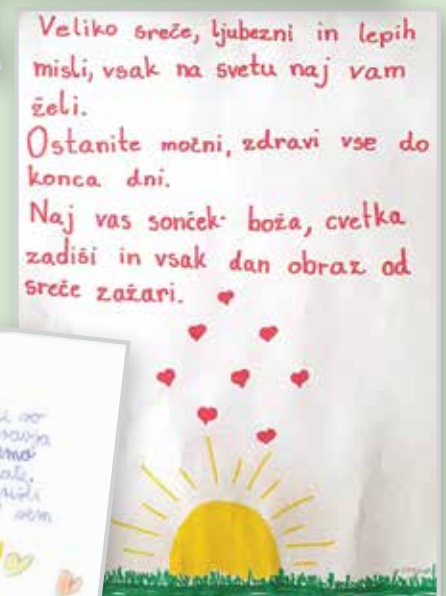 Veliko sreče, ljubezni in lepih
misli, vsak na svetu naj vam
želi.
Ostanite močni, zdravi vse do
konca dni.
Naj vas sonček boža, cvetka
zadiši in vsak dan obraz od
sreče zažari.